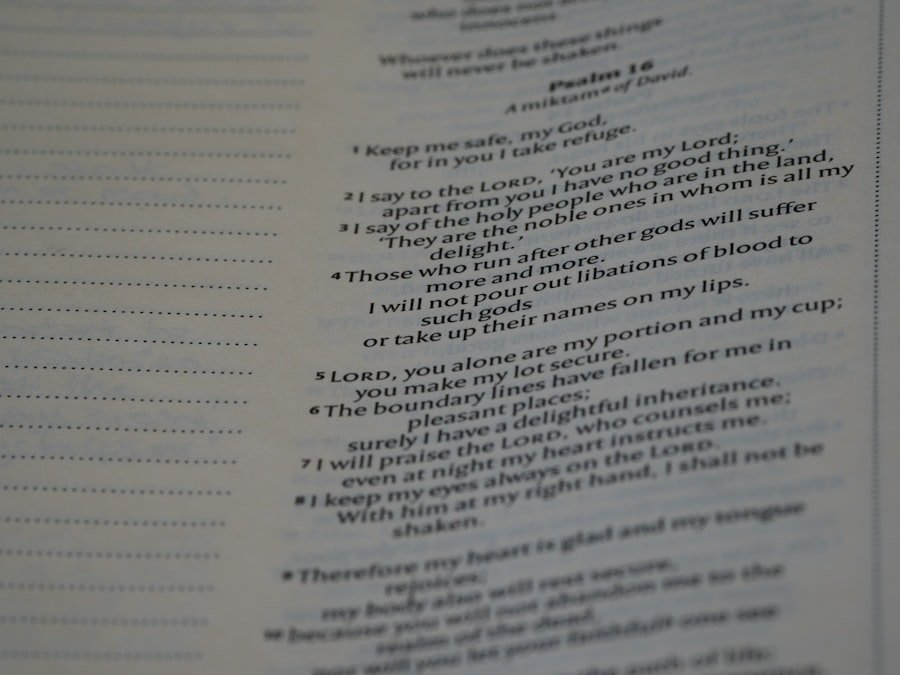 who does not
innocent.
Whoever does these things
will never be shaken.
Psalm 16
A miktamᵃ of David.
1 Keep me safe, my God,
for in you I take refuge.
2 I say to the LORD, ‘You are my Lord;
apart from you I have no good thing.’
3 I say of the holy people who are in the land,
‘They are the noble ones in whom is all my
delight.’
4 Those who run after other gods will suffer
more and more.
I will not pour out libations of blood to
such gods
or take up their names on my lips.
5 LORD, you alone are my portion and my cup;
you make my lot secure.
6 The boundary lines have fallen for me in
pleasant places;
surely I have a delightful inheritance.
7 I will praise the LORD, who counsels me;
even at night my heart instructs me.
8 I keep my eyes always on the LORD.
With him at my right hand, I shall not be
shaken.
9 Therefore my heart is glad and my tongue
rejoices;
my body also will rest secure,
10 because you will not abandon me to the
realm of the dead,
nor will you let your faithful one see
path of life;